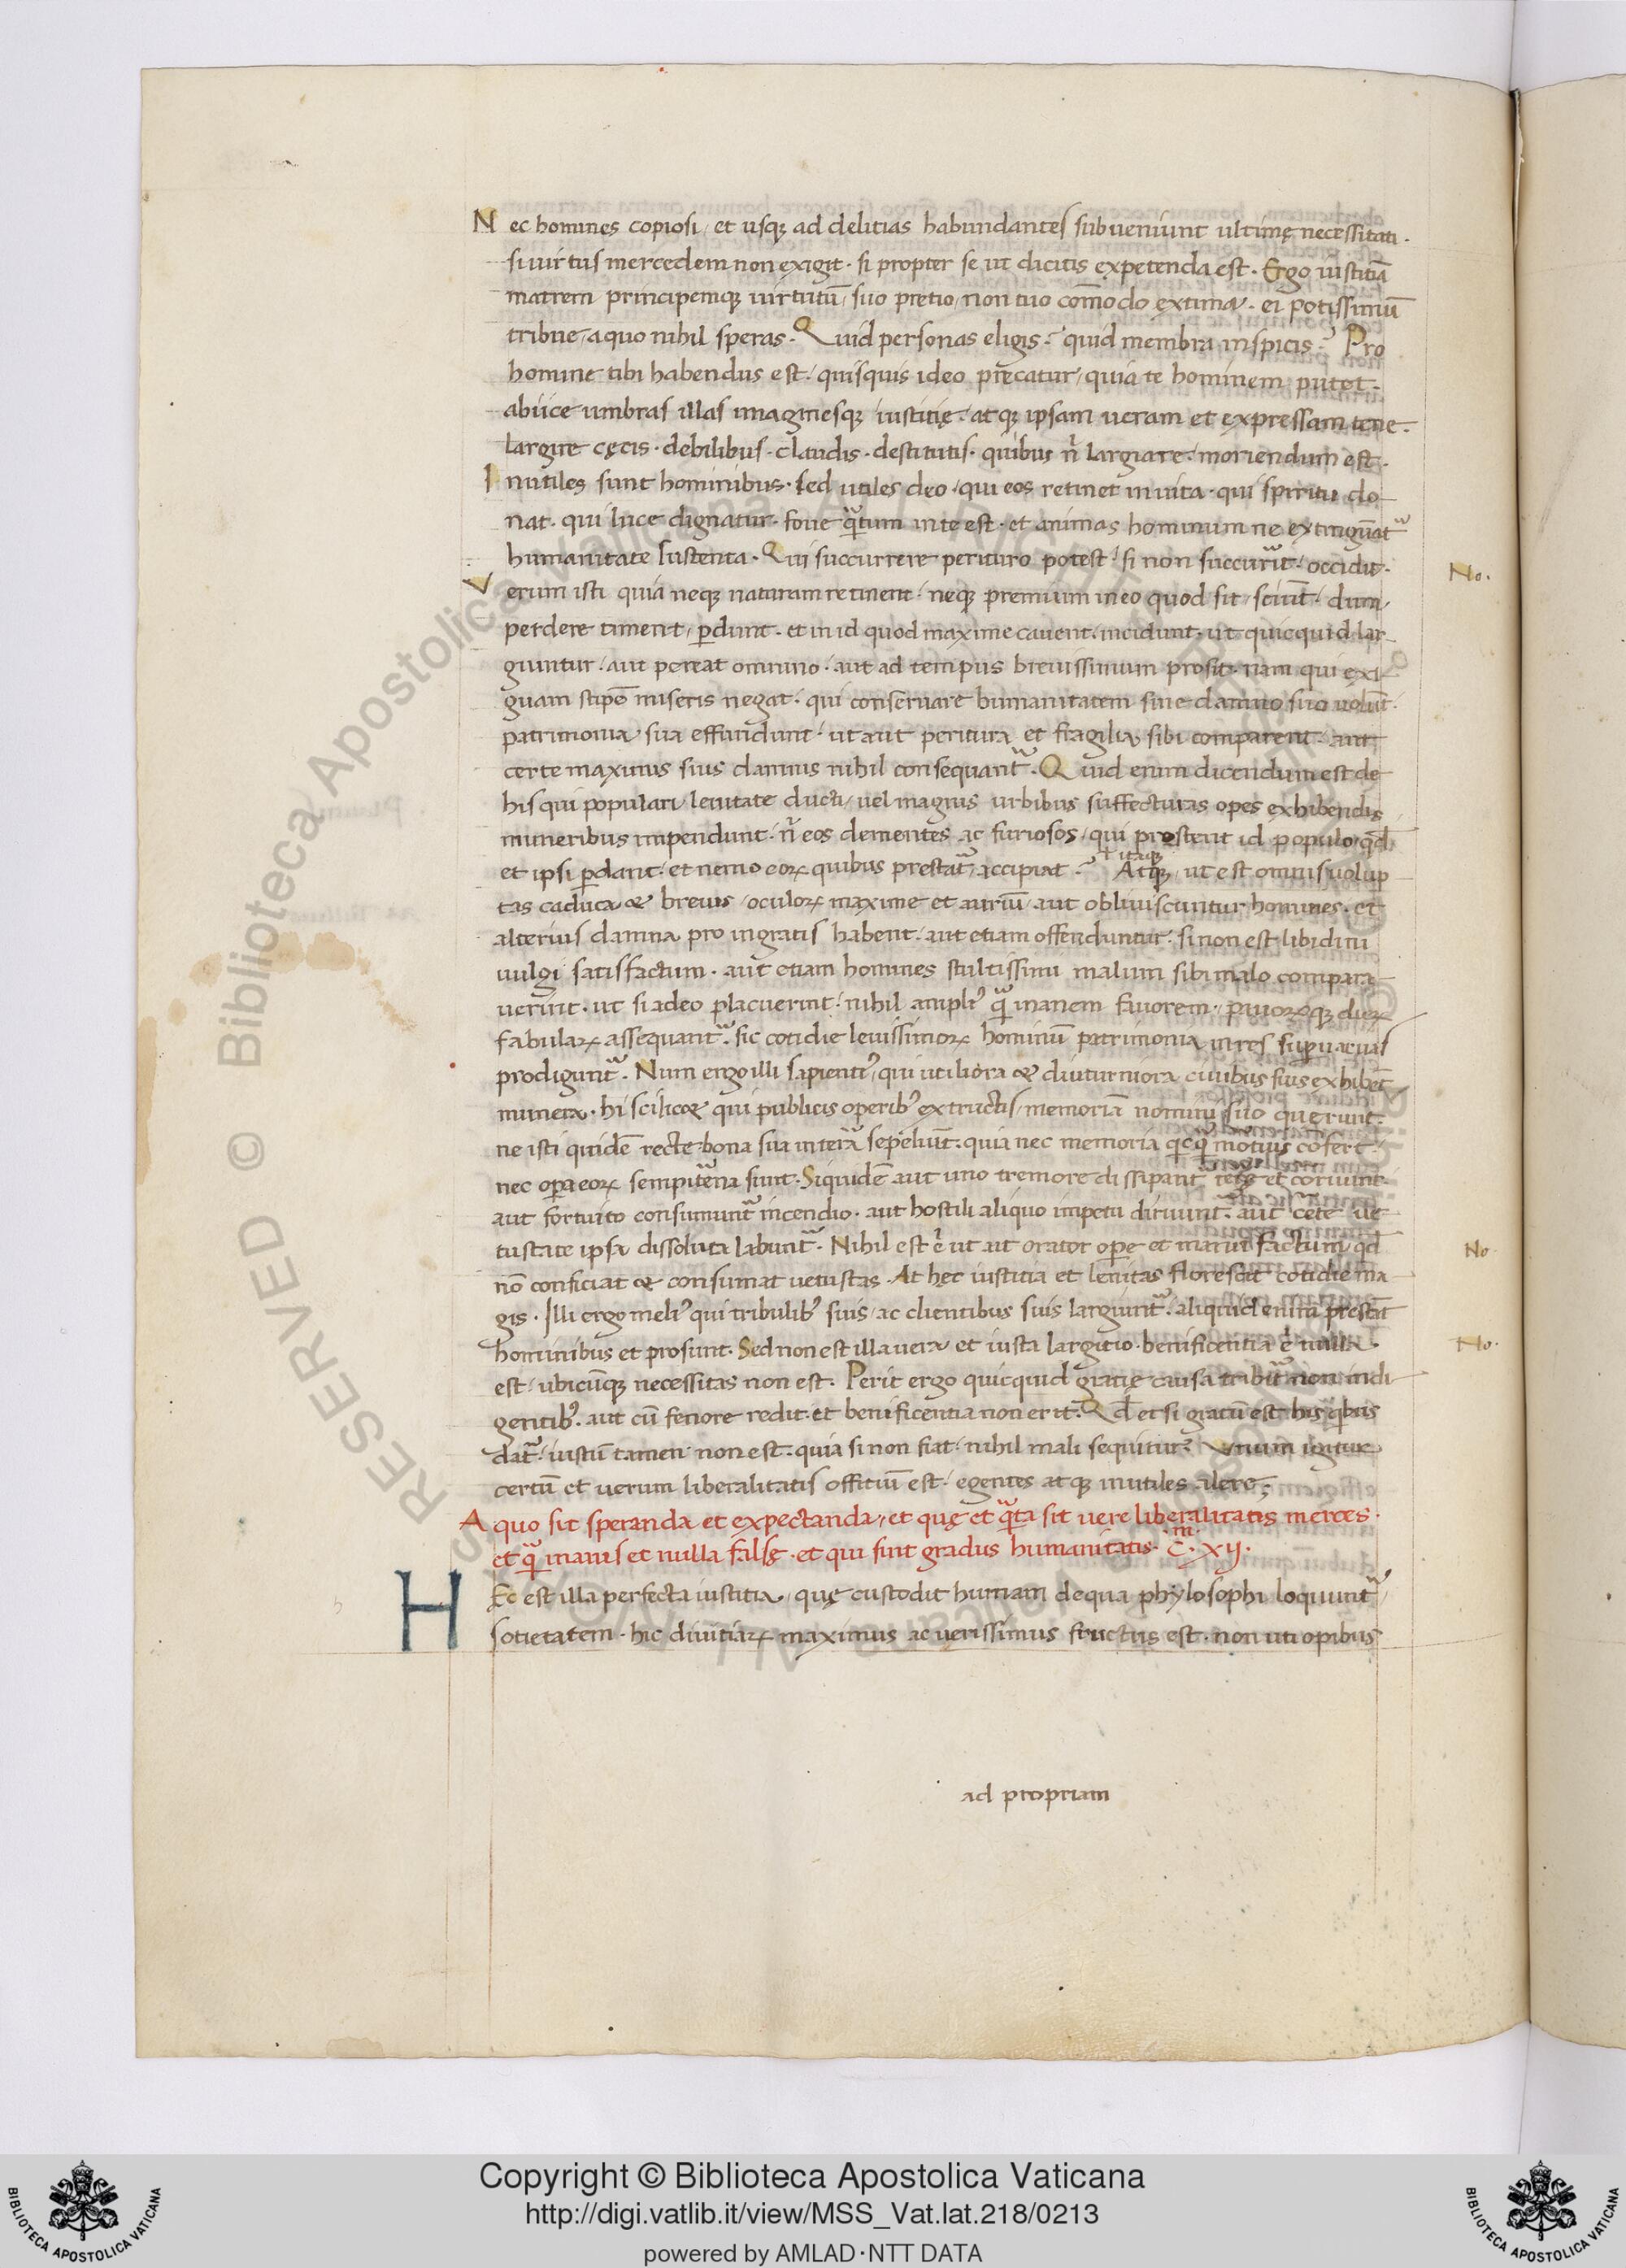 Nec homines copiosi / et usq; ad delitias habundantes subueniunt ultimę necessitati.
si uirtus mercedem non exigit. si propter se ut dicitis expetenda est. Ergo iustitiā
matrem principemq; uirtutū / suo pretio / non tuo cōmodo extima. ei potissimū
tribue / a quo nihil speras. Quid personas eligis? quid membra inspicis? Pro
homine tibi habendus est / quisquis ideo precatur / quia te hominem putet.
abiice umbras illas imaginesq; iustitię / atq; ipsam ueram et expressam tene.
largire cęcis. debilibus. claudis. destitutis. quibus n̄ largiare / moriendum est.
Inutiles sunt hominibus. sed utiles deo / qui eos retinet in uita. qui spiritu do
nat. qui luce dignatur. foue q̄tum in te est. et animas hominum ne extinguāt᷑
humanitate sustenta. Qui succurrere perituro potest / si non succurīt / occidit.
No.
Verum isti quia neq; naturam retinent / neq; premium in eo quod sit / sciūt / dum
perdere timent / ꝑdunt. et in id quod maxime cauent / incidunt. ut quicquid lar
giuntur / aut pereat omnino / aut ad tempus breuissimum prosit. nam qui exi
guam stipē miseris negāt. qui conseruare humanitatem sine damno suo uolūt.
patrimonia sua effundunt / ut aut peritura et fragilia sibi comparent / aut
certe maximis suis damnis nihil consequant᷑. Quid enim dicendum est de
his qui populari leuitate ducti / uel magnis urbibus suffecturas opes exhibendis
muneribus impendunt. n̄ eos dementes ac furiosos / qui prestent id populo qđ
+ itaq;
et ipsi ꝑdant / et nemo eoꝝ quibus prestat᷑ accipiat? Atq; ut est omnis uolup
tas caduca & breuis / oculoꝝ maxime et auriū / aut obliuiscuntur homines. et
alterius damna pro ingratis habent / aut etiam offenduntur / si non est libidini
uulgi satisfactum. aut etiam homines stultissimi malum sibi malo compara
uerint. ut si adeo placuerint / nihil ampli᷒ q̄ inanem fauorem / pauoroꝝq; dieꝝ
fabulaꝝ assequant᷑. sic cotidie leuissimoꝝ hominū patrimonia in res suꝑuacuas
prodigunt᷑. Num ergo illi sapienti᷒ / qui utiliora & diuturniora ciuibus suis exhibēt
munera. hi scilic& qui publicis operib᷒ extructis / memoriā nomini suo querunt.
ne isti quidē recte bona sua in terā sepeliūt. quia nec memoria q̇cq̄ motuis cōfert /
nec oꝑa eoꝝ sempit᷑na sunt. Siquidē aut uno tremore dissipant᷑ tere et coruunt.
aut fortuito consumunt᷑ incendio. aut hostili aliquo impetu diruunt᷑. aut certe ue
No
tustate ipsa dissoluta labunt᷑. Nihil est ē ut ait orator oꝑe et manu factum qđ
nō conficiat & consumat uetustas. At hec iustitia et lenitas florescit cotidie ma
gis. Illi ergo meli᷒ qui tribulib᷒ suis / ac clientibus suis largiunt᷑. aliquid enim prestāt
No.
hominibus et prosunt. Sed non est illa uera et iusta largitio. benificentia ē nulla
est / ubicūq; necessitas non est. Perit ergo quicquid gratię causa tribuit᷑ non indi
gentib᷒. aut cū fenore redit. et benificentia non erit. Qđ et si gratū est his quibus
dat᷑ / iustū tamen non est. quia si non fiat / nihil mali sequitur. Vnum igitur
certū et uerum liberalitatis offitiū est / egentes atq; inutiles alere;
A quo sit speranda et expectanda / et quę et q̄ta sit uere liberalitatis merces.
et q̄ inanis et nulla falsę. et qui sint gradus humanitatis. C.m XIJ.
HEc est illa perfecta iustitia / quę custodit humanam de qua phylosophi loquunt᷑
sotietatem. hic diuitiaꝝ maximus ac uerissimus fructus est. non uti opibus
ad propriam
RESERVED © Biblioteca Apostolica Vaticana
Copyright © Biblioteca Apostolica Vaticana
http://digi.vatlib.it/view/MSS_Vat.lat.218/0213
powered by AMLAD·NTT DATA
BIBLIOTECA APOSTOLICA VATICANA
BIBLIOTECA APOSTOLICA VATICANA